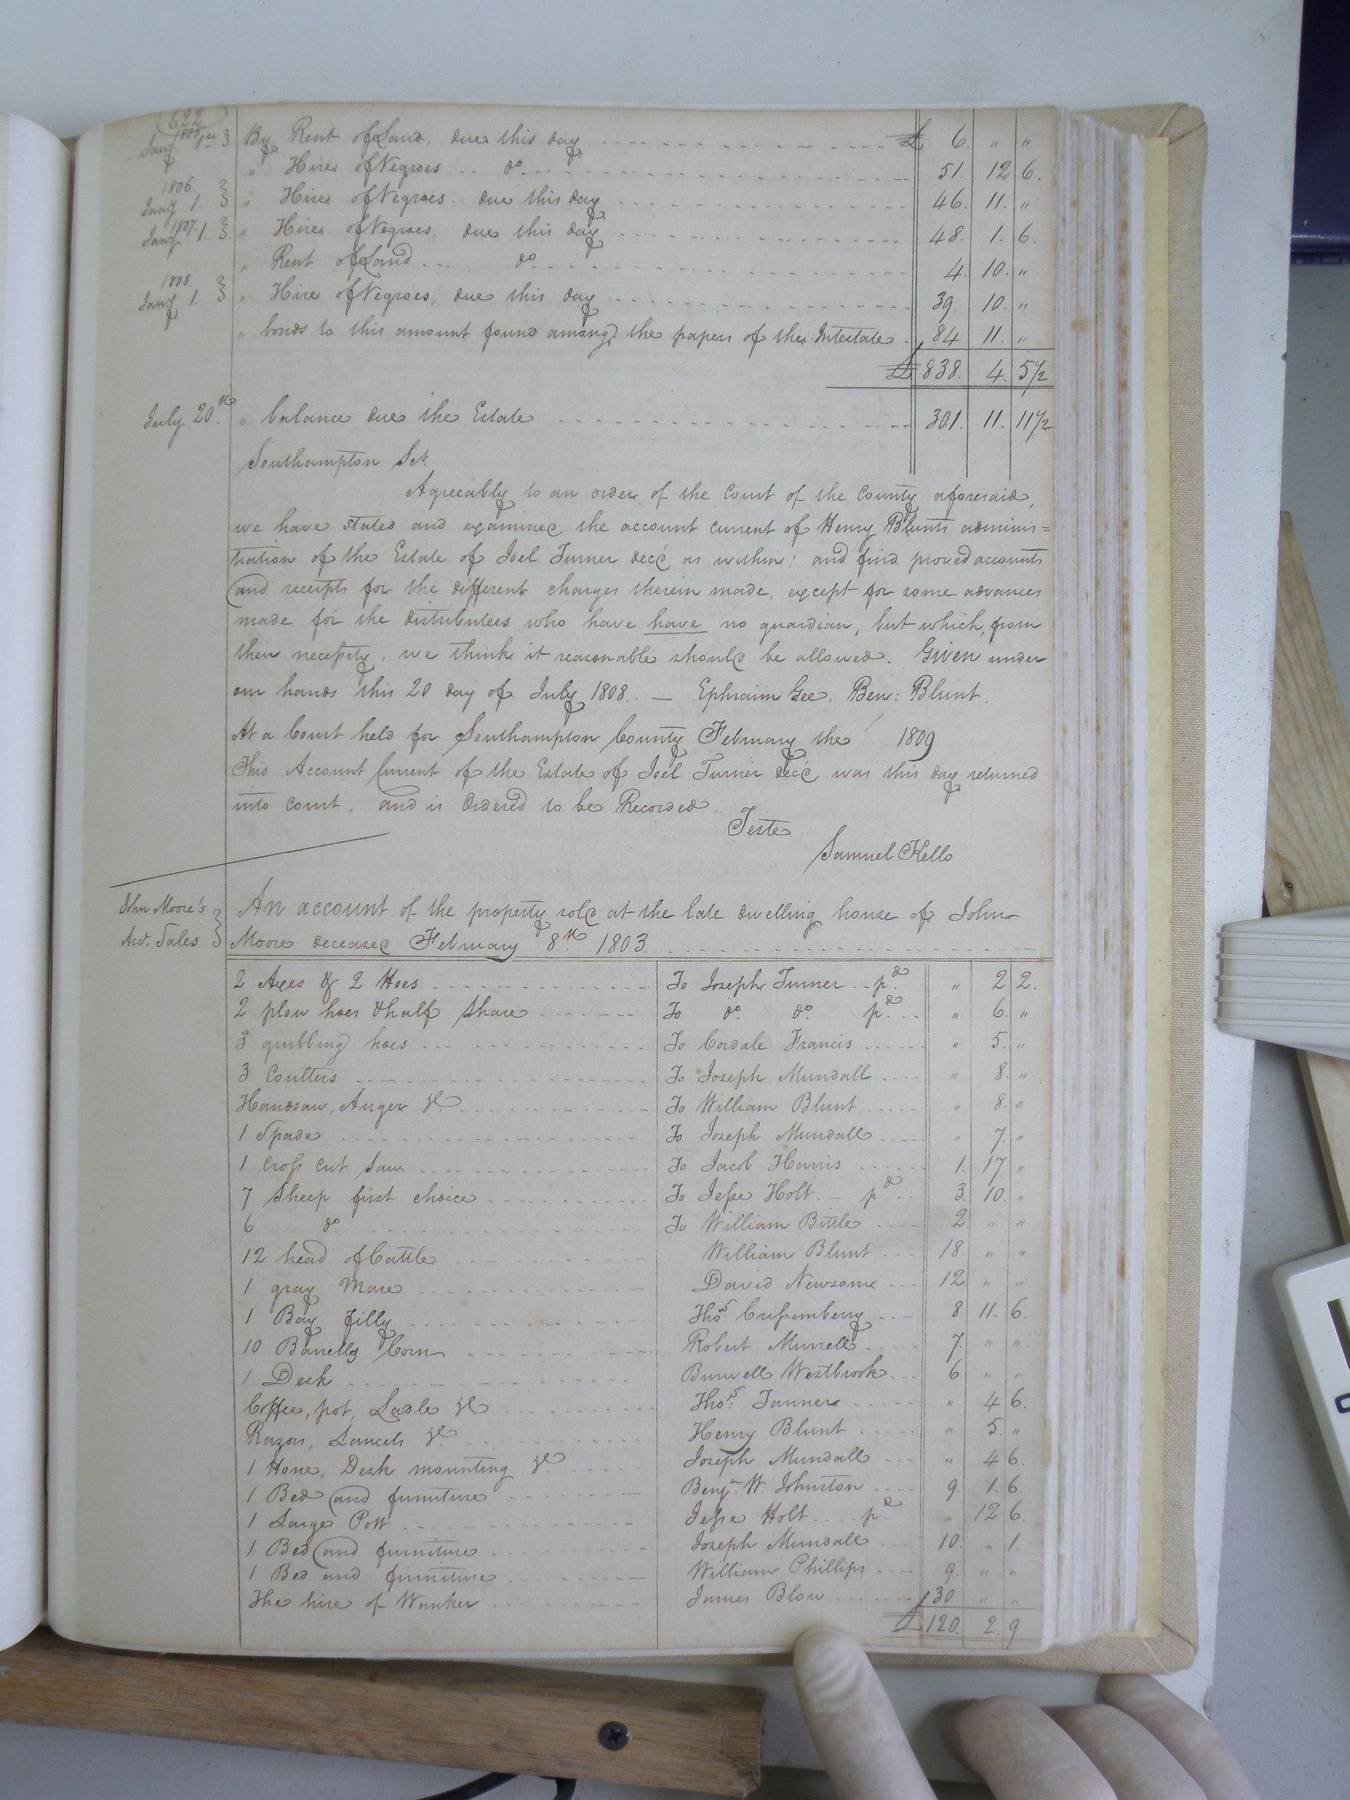 622
1805 Jany 1st } By Rent of Land, due this day £ 6. " "
" Hires of Negroes do. 51. 12 6.
1806. Jany 1. } " Hires of Negroes. due this day 46. 11. "
1807. Jany 1. } " Hires of Negroes, due this day 48. 1. 6.
" Rent of Land do. 4. 10. "
1808. Jany 1. } " Hire of Negroes, due this day 39. 10. "
" bonds to this amount found among the papers of the Intestate. 84 11. "
£ 838. 4. 5 1/2
July 20th. " balance due the Estate 301. 11. 11 1/2
Southampton Sct.
Agreeably to an order of the Court of the County aforesaid,
we have stated and examined the account current of Henry Blunts adminis=
tration of the Estate of Joel Turner decd as within: and find proved accounts
and receipts for the different charges therein made, except for some advances
made for the distributees who have have no guardian, but which, from
their necessity, we think it reasonable should be allowed. Given under
our hands this 20 day of July 1808. — Ephraim Gee. Ben: Blunt.
At a Court held for Southampton County February the 1809
This Account Current of the Estate of Joel Turner decd was this day returned
into court, and is Ordered to be Recorded.
Teste
Samuel Kello
John Moore's } An account of the property sold at the late dwelling house of John
Act. Sales } Moore deceased February 8th 1803.
2 Axes & 2 Hoes To Joseph Turner pd " 2 2.
2 plow hoes & half share To do. do. pd " 6. "
3 grubbing hoes To Cordale Francis " 5. "
3 Coulters To Joseph Mundall " 8. "
Handsaw, Auger &c To William Blunt " 8. "
1 Spade To Joseph Mundall " 7. "
1 Cross cut Saw To Jacob Harris 1. 17. "
7 Sheep first choice To Jesse Holt. pd 3. 10. "
6 do. To William Bittle 2 " "
12 head of Cattle William Blunt 18. " "
1 gray Mare David Newsome 12 " "
1 Bay filly Thos. 8 11. 6.
10 Barrells Corn Robert Murrell 7. " "
1 Desk Burwell Westbrook 6 " "
Coffee, pot, Ladle &c Thos. Tanner " 4 6.
Razors, Lancets &c Henry Blunt " 5. "
1 Hone, Desk mounting &c Joseph Mundall " 4 6
1 Bed and furniture Benjn. W. Johnston 9. 1. 6.
1 Large Pott Jesse Holt pd " 12 6.
1 Bed and furniture Joseph Mundall 10. " 1.
1 Bed and furniture William Phillips 9. " "
The hire of James Blow 30 " "
£ 120. 2. 9